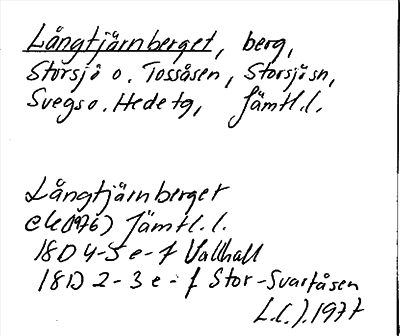 Långtjärnberget, berg,
Storsjö o. Tossåsen, Storsjö sn,
Svegs o. Hede tg, Jämtl.l.
Långtjärnberget
ek (1976) Jämtl.l.
18D 4-5 e-f Vallhall
18D 2-3 e-f Stor-Svartåsen
1977